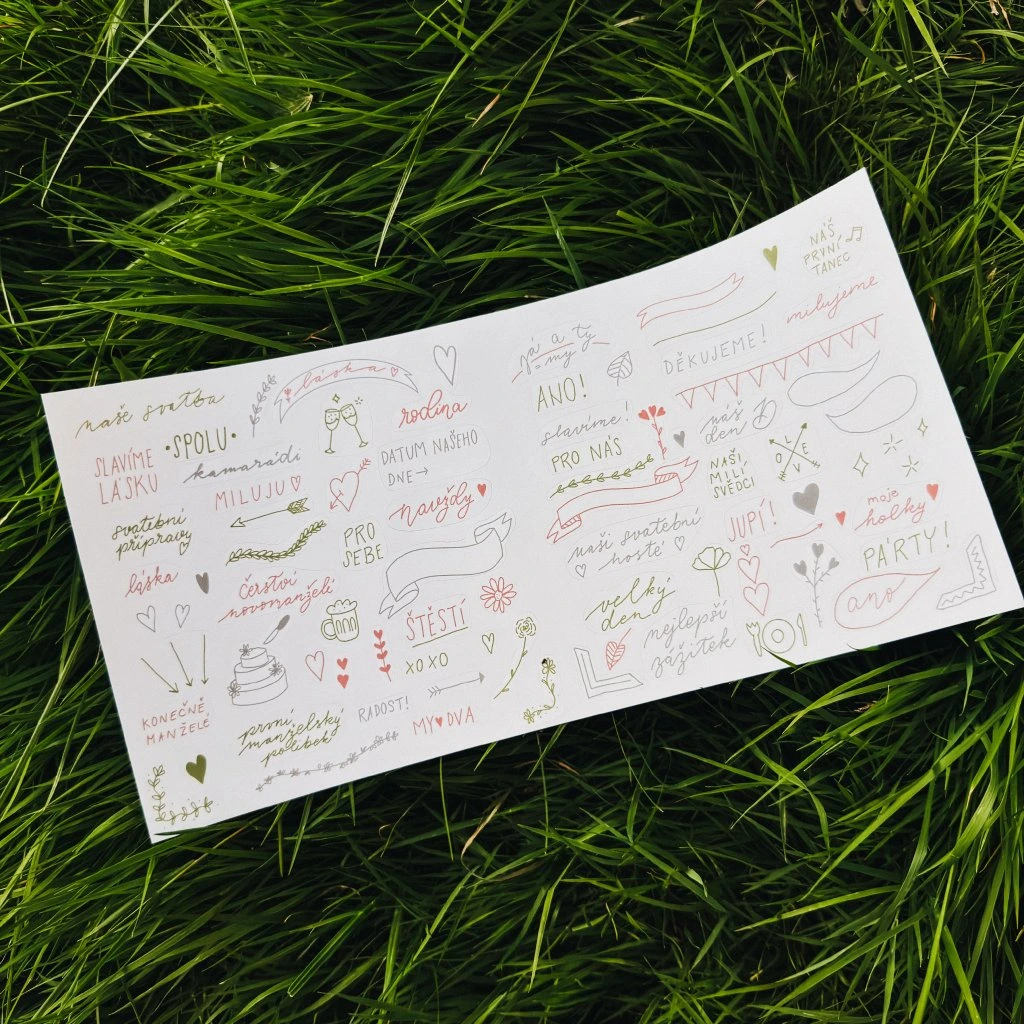 naše svatba
láska
SLAVÍME
LÁSKU
•SPOLU•
kamarádi
rodina
DATUM NAŠEHO
DNE→
MILUJU
svatební
přípravy
navždy
PRO
SEBE
láska
čerství
novomanželé
ŠTĚSTÍ
XOXO
KONEČNĚ
MANŽELÉ
první
manželský
polibek
RADOST!
MY♥DVA
já a ty
= my
ANO!
slavíme!
PRO NÁS
DĚKUJEME!
NÁŠ
PRVNÍ
TANEC
milujeme
náš
den D
NAŠI
MILÍ
SVĚDCI
LOVE
naši svatební
hosté
JUPÍ!
moje
holky
PÁRTY!
velký
den
nejlepší
zážitek
ano